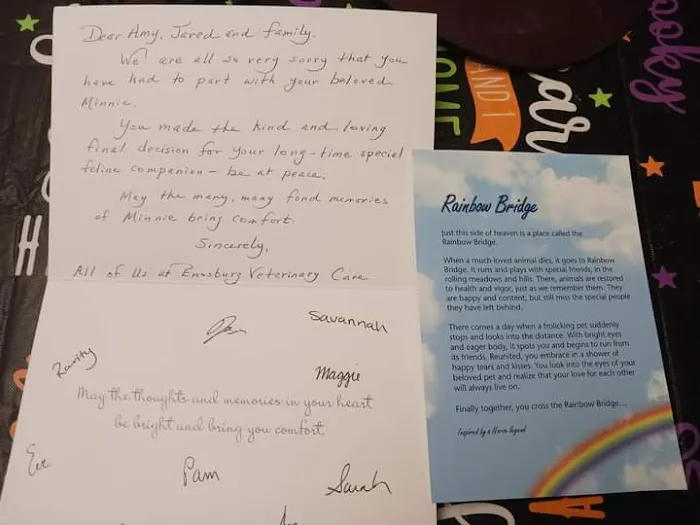 Dear Amy, Jared and family.
We are all so very sorry that you
have had to part with your beloved
Minnie.
You made the kind and loving
final decision for your long-time special
feline companion - be at peace.
May the many, many fond memories
of Minnie bring comfort.
Sincerely,
All of Us at Ennsburg Veterinary Care
Savannah
Maggie
May the thoughts and memories in your heart
be bright and bring you comfort
Pam
Sarah
Rainbow Bridge
Just this side of heaven is a place called the
Rainbow Bridge.
When a much-loved animal dies, it goes to Rainbow
Bridge. It runs and plays with special friends, in the
rolling meadows and hills. There, animals are restored
to health and vigor, just as we remember them. They
are happy and content, but still miss the special people
they have left behind.
There comes a day when a frolicking pet suddenly
stops and looks into the distance. With bright eyes
and eager body, it spots you and begins to run from
its friends. Reunited, you embrace in a shower of
happy tears and kisses. You look into the eyes of your
beloved pet and realize that your love for each other
will always live on.
Finally together, you cross the Rainbow Bridge....
Inspired by a Norse legend
AND I